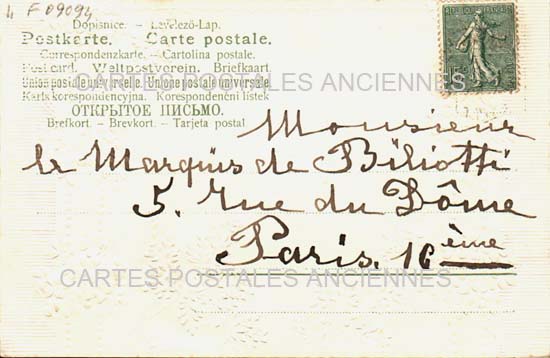 4 F 09094
Dopisnice. — Levelező-Lap.
Postkarte. — Carte postale.
Correspondenzkarte. — Cartolina postale.
Post card. — Weltpostverein. — Briefkaart.
CARTES POSTALES ANCIENNES
Union postale universelle. Unione postale universale.
Karta korespondencyjna. Korespondenční lístek
ОТКРЫТОЕ ПИСЬМО.
Brefkort. — Brevkort. — Tarjeta postal
Monsieur
le Marquis de Biliotti
5. Rue du Dôme
Paris. 16ème
CARTES POSTALES ANCIENNES